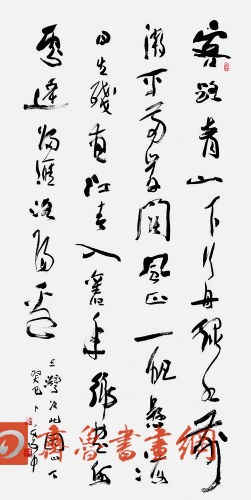 客路青山下行舟綠水前
潮平兩岸闊風正一帆懸海
日生殘夜江春入舊年鄉書何
處達歸雁洛陽邊
王灣次北固山下
癸巳
齊魯書畫網